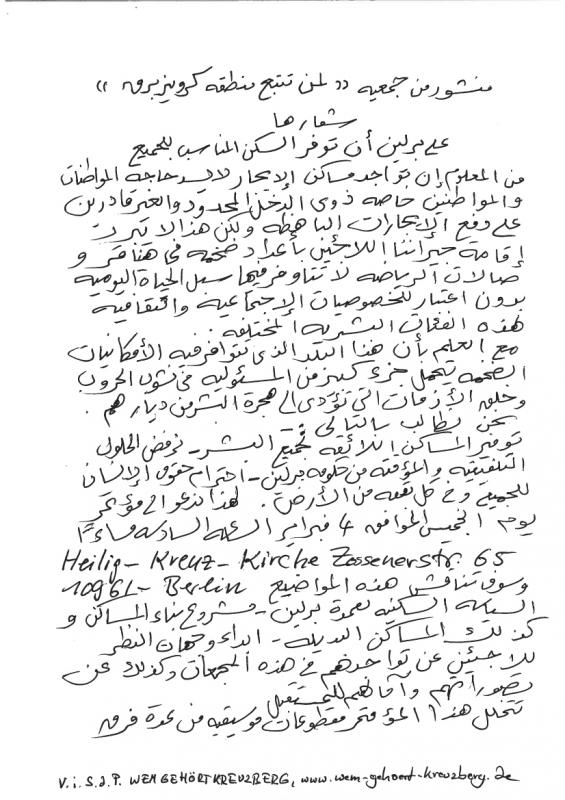 منشور من جمعيه " لمن تتبع منطقه كرويزبرق "
شعارها
على برلين أن توفر السكن المناسب للجميع
من المعلوم إن تواجد مساكن الإيجار لايسد حاجه المواطنات
والمواطنين خاصه ذوي الدخل المحدود والغير قادرين
على دفع الإيجارات الباهظه ولكن هذا لا يبرر
إقامة جيراننا اللاجئين بأعداد ضخمه في هناقر و
صالات الرياضه لا تتاوفر فيها سبل الحياة اليوميه
بدون اعتبار للخصوصيات الإجتماعية والثقافية
لهذه الفئات البشريه المختلفه.
مع العلم بأن هذا البلد الذي تتوافر فيه الأمكانيات
الضخمه يتحمل جزء كبير من المسئوليه في نشوب الحروب
وخلق الأزمات التي تؤدي الى هجرة البشر من ديارهم.
نحن نطالب بالتالي
توفير المساكن اللائقه لجميع البشر - نرفض الحلول
التلفيقيه والمؤقته من حكومه برلين - احترام حقوق الإنسان
للجميع وفي كل بقعه من الأرض. لهذا ندعو الى مؤتمر
يوم الخميس الموافق 4 فبراير الساعه السادسه مساءً
Heilig - Kreuz - Kirche Zossenerstr. 65
10961 - Berlin وسوف تناقش هذه المواضيع
السياسه السكنيه لعمدة برلين - مشروع بناء المساكن و
كذلك المساكن البديله - ابداء وجهات النظر
للاجئين عن تواجدهم في هذه المجمعات وكذلك عن
تصوراتهم وآمالهم للمستقبل
تتخلل هذا المؤتمر مقطوعات موسيقيه من عدة فرق
V.i.S.d.P. WEM GEHÖRT KREUZBERG, www.wem-gehoert-kreuzberg.de